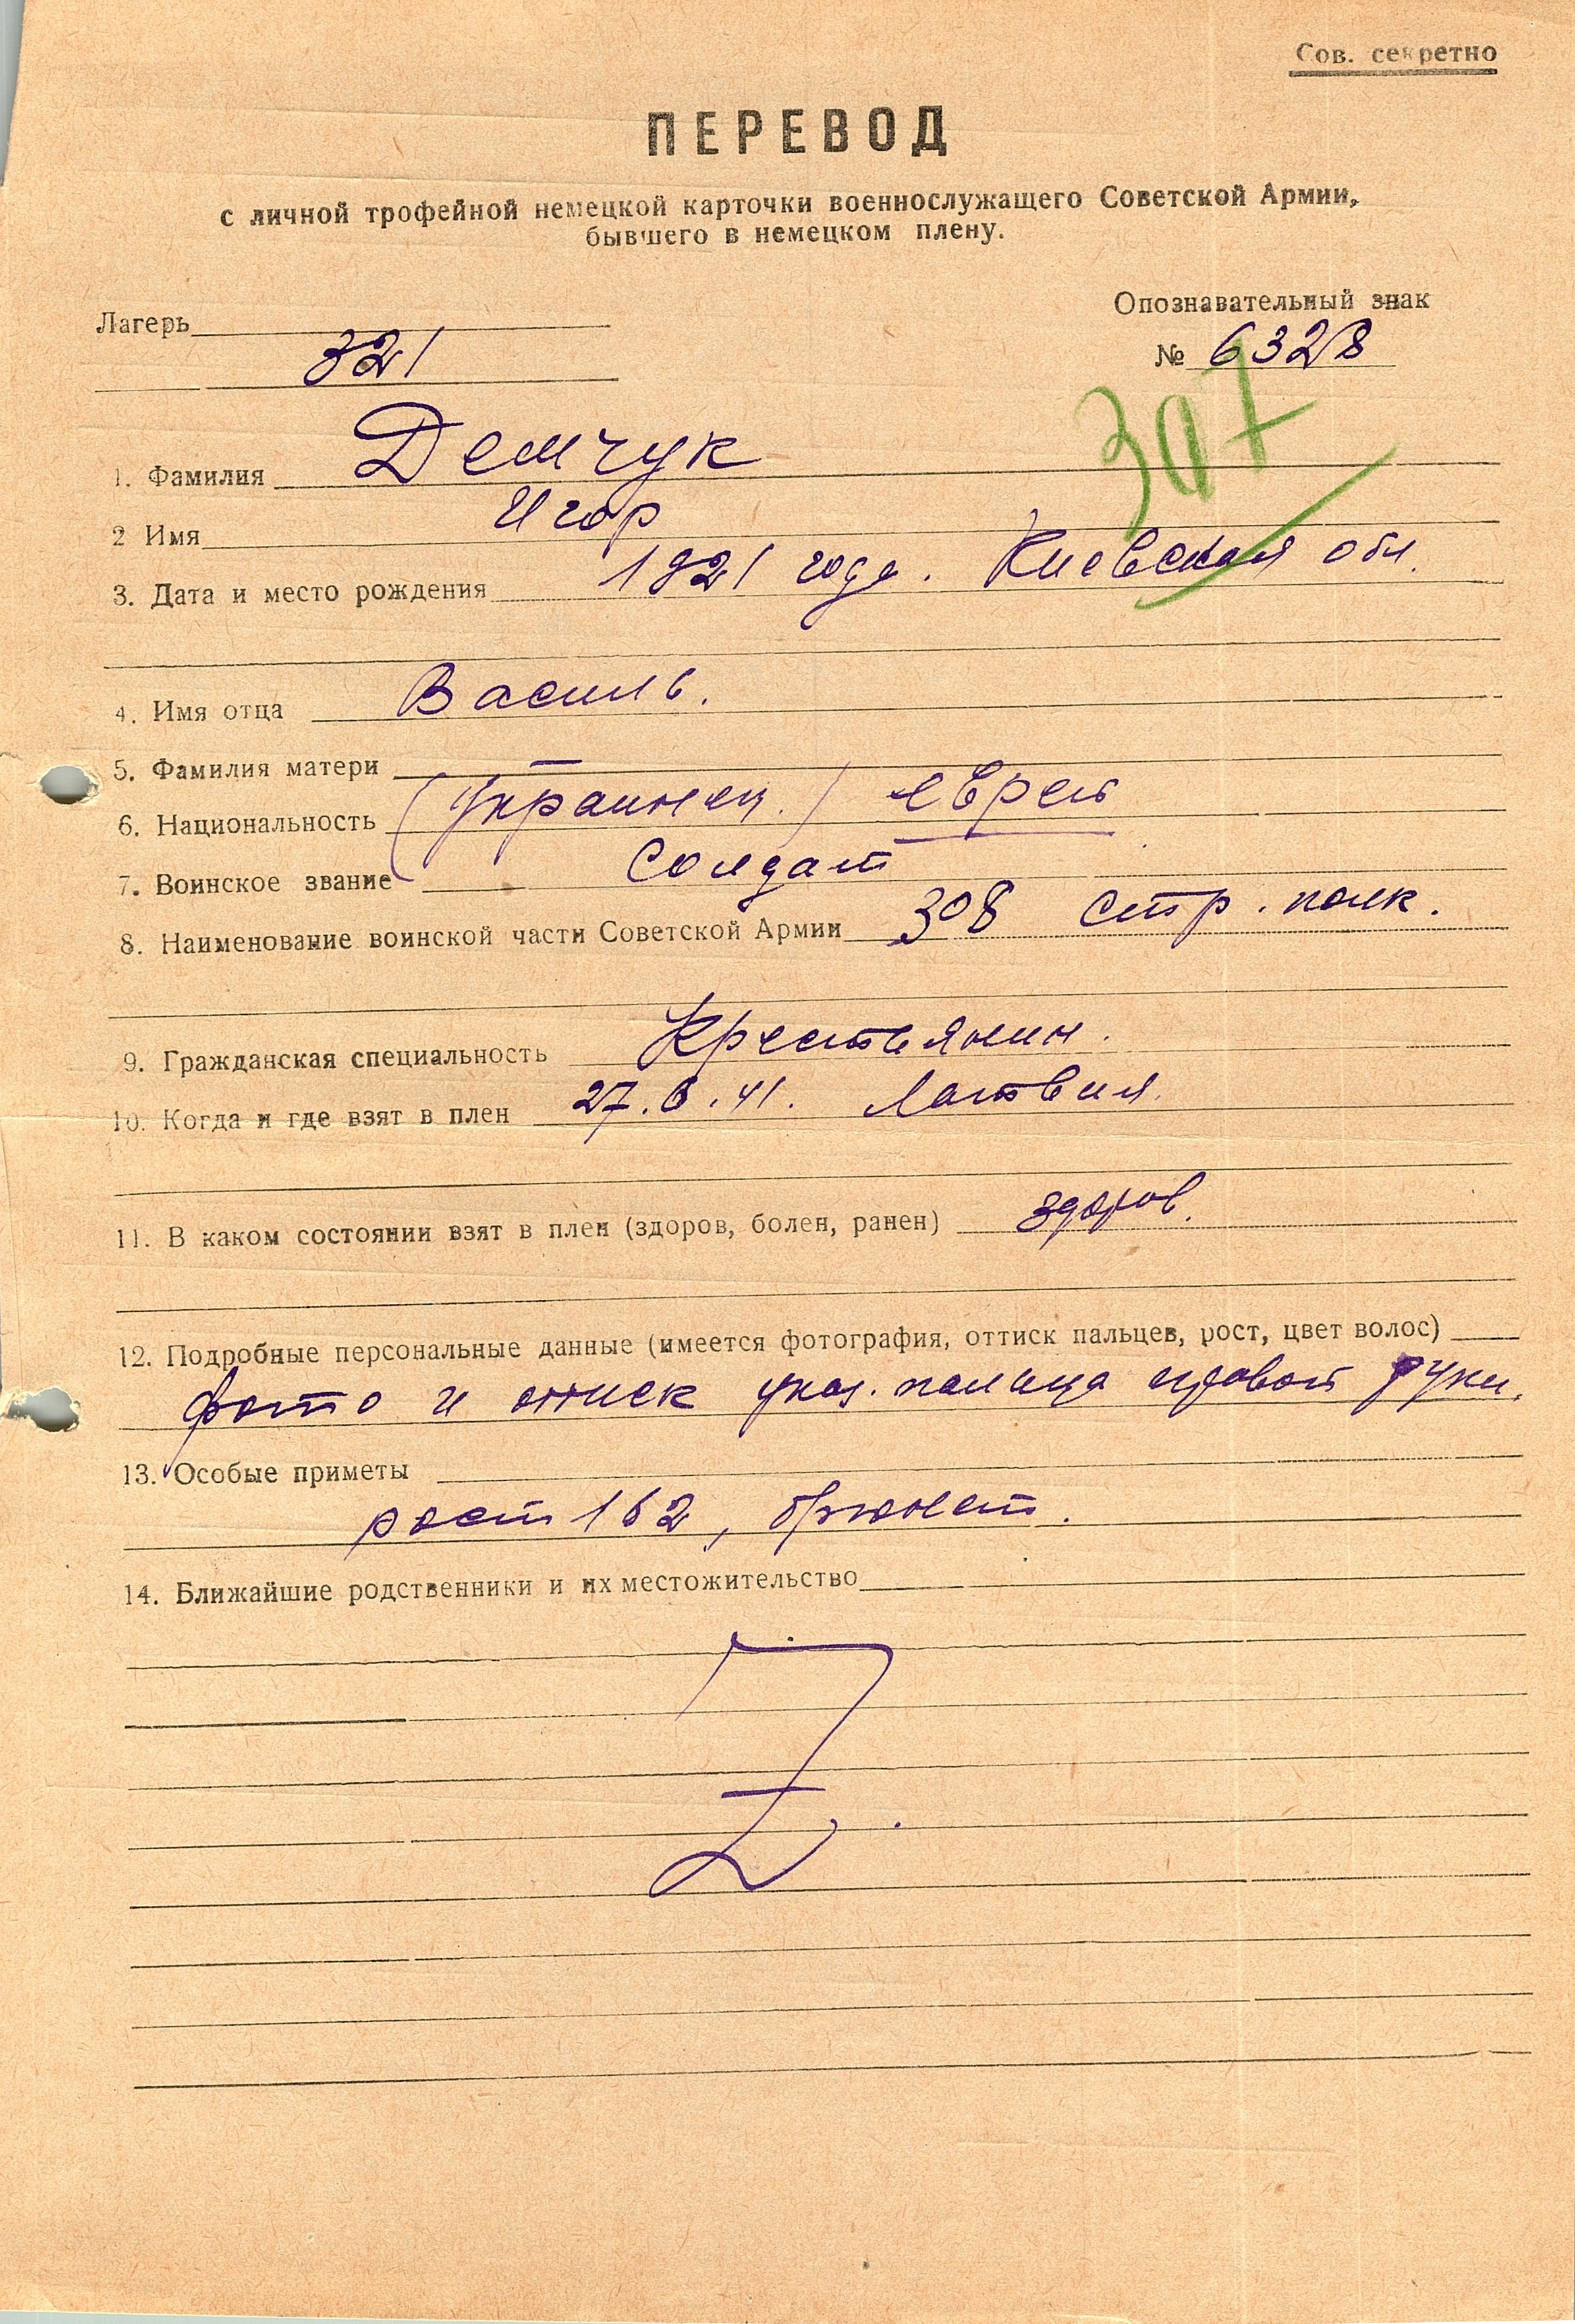 Сов. секретно
ПЕРЕВОД
с личной трофейной немецкой карточки военнослужащего Советской Армии,
бывшего в немецком плену.
Опознавательный знак
Лагерь
321
№ 6328
307
1. Фамилия Демчук
2 Имя Игор
3. Дата и место рождения 1921 года. Киевская обл.
4. Имя отца Василь.
5. Фамилия матери —
6. Национальность (Украинец.) еврей
7. Воинское звание Солдат
8. Наименование воинской части Советской Армии 308 стр. полк.
9. Гражданская специальность Крестьянин.
10. Когда и где взят в плен 27.6.41. Латвия.
11. В каком состоянии взят в плен (здоров, болен, ранен) здоров.
12. Подробные персональные данные (имеется фотография, оттиск пальцев, рост, цвет волос)
фото и оттиск указ. пальца правой руки.
13. Особые приметы
рост 162, брюнет.
14. Ближайшие родственники и их местожительство